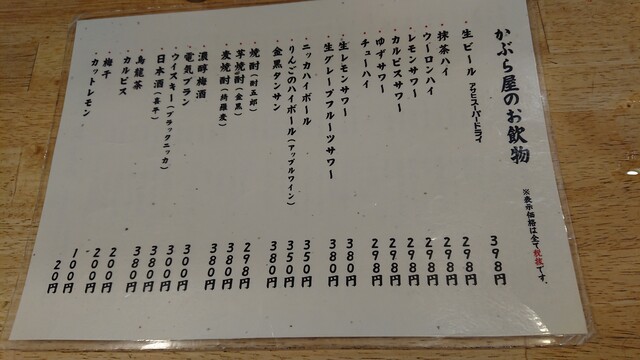 かぶら屋のお飲物
※表示価格は全て税抜です。
生ビール アサヒスーパードライ 398円
抹茶ハイ 298円
ウーロンハイ 298円
レモンサワー 298円
カルピスサワー 298円
ゆずサワー 298円
チューハイ 298円
生レモンサワー 380円
生グレープフルーツサワー 380円
ニッカハイボール 350円
りんごのハイボール(アップルワイン) 350円
金黒タンサン 380円
焼酎(財五郎) 298円
芋焼酎(金黒) 380円
麦焼酎(綺羅麦) 380円
濃醇梅酒 300円
電気ブラン 300円
ウイスキー(ブラックニッカ) 380円
日本酒(喜平) 380円
烏龍茶 200円
カルピス 200円
梅干 100円
カットレモン 20円